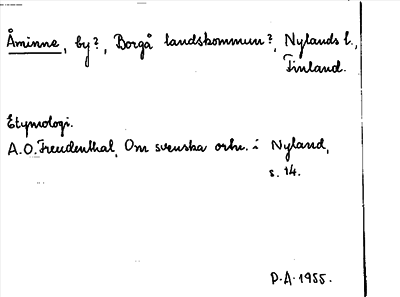 Åminne, by?, Borgå landskommun?, Nylands l.,
Finland.
Etymologi.
A.O. Freudenthal, Om svenska ortn. i Nyland,
s. 14.
P.A. 1955.